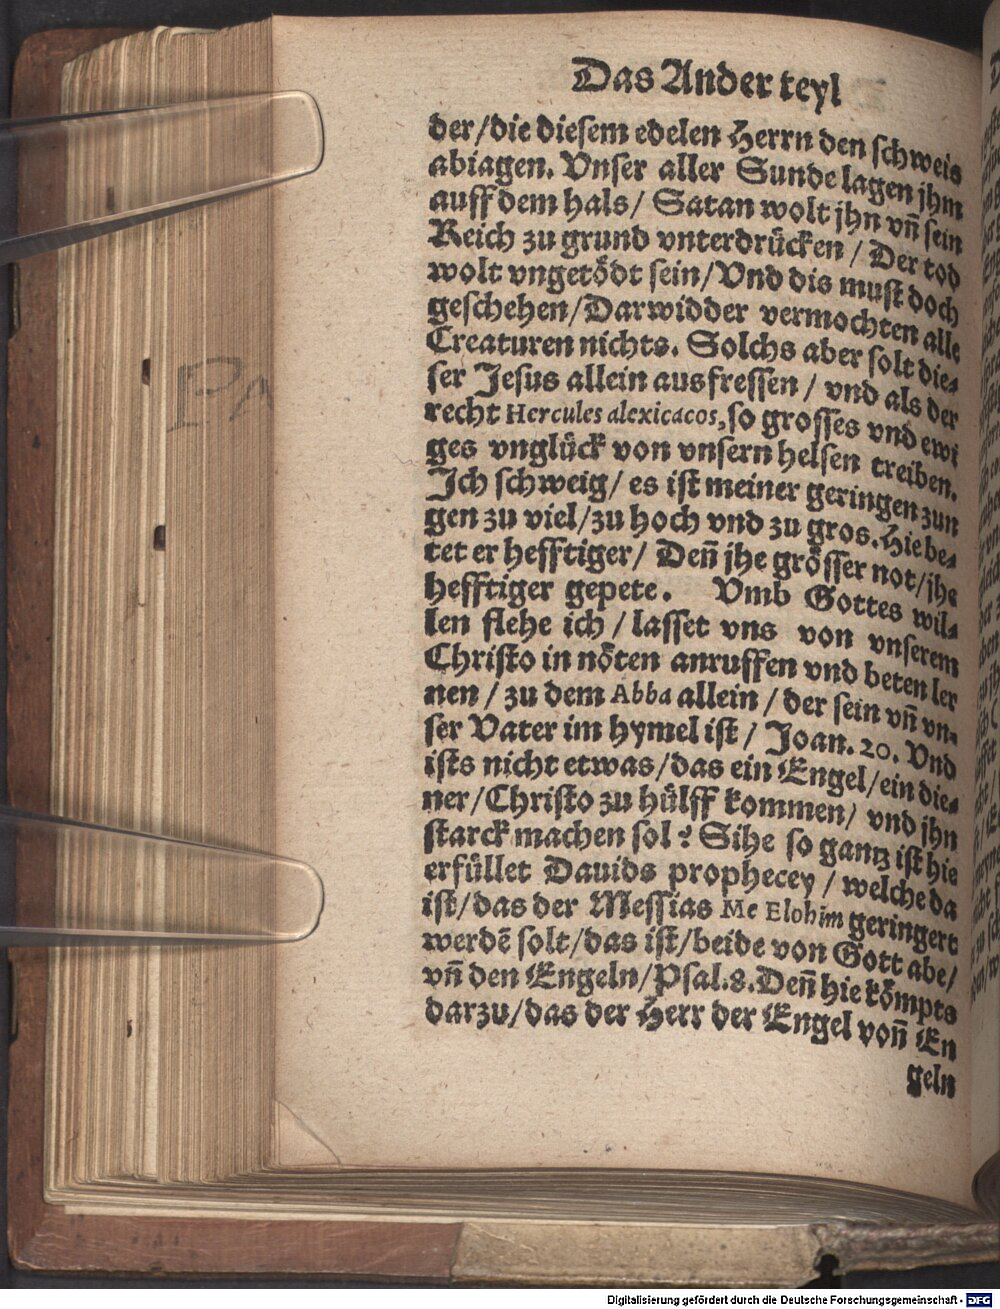 Das Ander teyl
der/die diesem edelen Herrn den schweis
abiagen. Vnser aller Sunde lagen jhm
auff dem hals/ Satan wolt jhn vñ sein
Reich zu grund vnterdrücken/ Der tod
wolt vngetödt sein/Vnd dis must doch
geschehen/Darwidder vermochten alle
Creaturen nichts. Solchs aber solt die-
ser Jesus allein ausfressen/ vnd als der
recht Hercules alexicacos, so grosses vnd ewi
ges vnglück von vnsern helsen treiben.
Ich schweig/ es ist meiner geringen zun
gen zu viel/zu hoch vnd zu gros. Hie be-
tet er hefftiger/ Deñ jhe grösser not/jhe
hefftiger gepete. Vmb Gottes wil-
len flehe ich/ lasset vns von vnserem
Christo in nöten anruffen vnd beten ler
nen/ zu dem Abba allein/ der sein vñ vn-
ser Vater im hymel ist/ Joan. 20. Vnd
ists nicht etwas/das ein Engel/ein die-
ner/Christo zu hülff kommen/ vnd jhn
starck machen sol? Sihe so gantz ist hie
erfüllet Dauids prophecey/ welche da
ist/das der Messias Me Elohim geringert
werdē solt/das ist/beide von Gott abe/
vñ den Engeln/Psal.8. Deñ hie kömpts
darzu/das der Herr der Engel voñ En
geln
PA
Digitalisierung gefördert durch die Deutsche Forschungsgemeinschaft - DFG